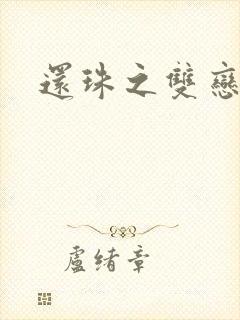 還珠之雙戀
盧緒章